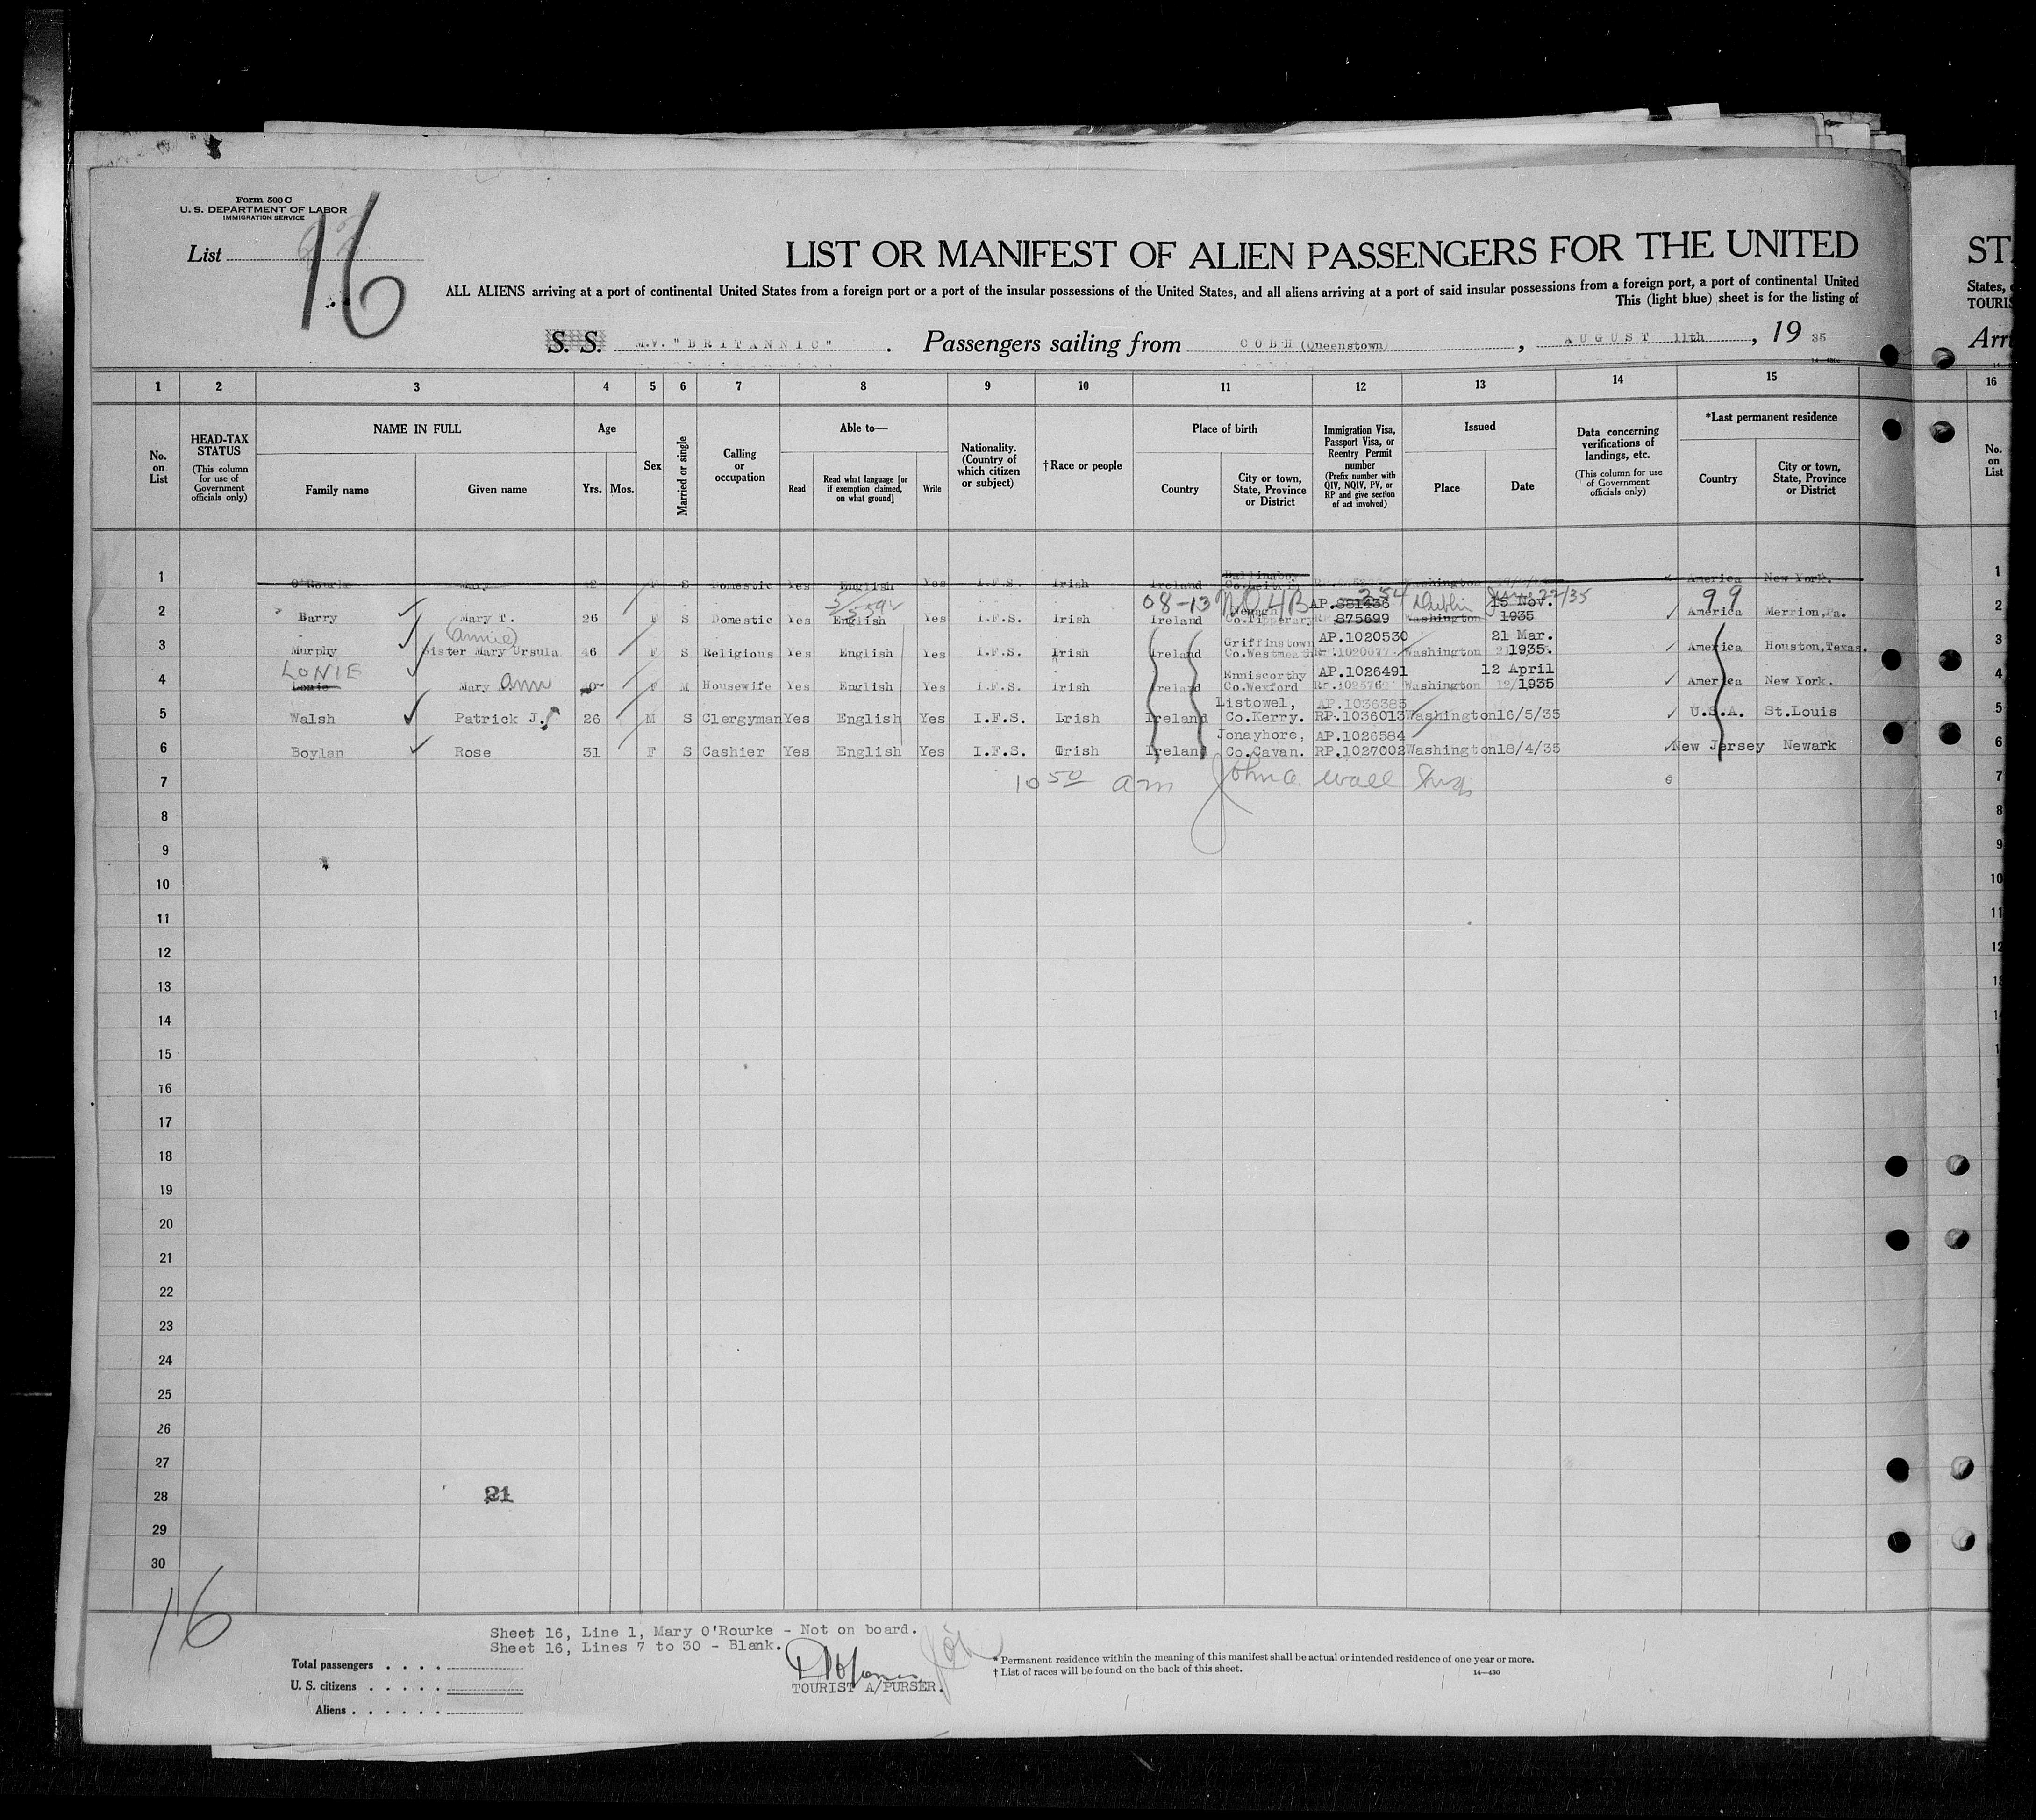 Form 500 C
U. S. DEPARTMENT OF LABOR
IMMIGRATION SERVICE
List
16
LIST OR MANIFEST OF ALIEN PASSENGERS FOR THE UNITED
ST
ALL ALIENS arriving at a port of continental United States from a foreign port or a port of the insular possessions of the United States, and all aliens arriving at a port of said insular possessions from a foreign port, a port of continental United
States,
This (light blue) sheet is for the listing of
TOURIS
S. S. M.V. "BRITANNIC". Passengers sailing from COBH (Queenstown), AUGUST 11th, 19 35
Arri
1 2 3 4 5 6 7 8 9 10 11 12 13 14 15 16
No. on List
HEAD-TAX STATUS (This column for use of Government officials only)
NAME IN FULL
Family name
Given name
Age
Yrs. Mos.
Sex
Married or single
Calling or occupation
Able to—
Read
Read what language [or if exemption claimed, on what ground]
Write
Nationality. (Country of which citizen or subject)
†Race or people
Place of birth
Country
City or town, State, Province or District
Immigration Visa, Passport Visa, or Reentry Permit number (Prefix number with QIV, NQIV, PV, or RP and give section of act involved)
Issued
Place
Date
Data concerning verifications of landings, etc. (This column for use of Government officials only)
*Last permanent residence
Country
City or town, State, Province or District
No. on List
1 O'Rourke Mary F S Domestic Yes English Yes I.F.S. Irish Ireland Washington America New York. 1
08-13 254 99
2 Barry Mary T. 26 F S Domestic Yes English Yes I.F.S. Irish Ireland Nenagh Co.Tipperary AP.881436 RP.875699 Dublin Washington 15 Nov. 1935 America Merrion,Pa. 2
(Annie)
3 Murphy Sister Mary Ursula 46 F S Religious Yes English Yes I.F.S. Irish Ireland Griffinstown Co.Westmeath AP.1020530 Washington 21 Mar. 1935. America Houston,Texas. 3
LONIE
4 Lonie Mary Ann F M Housewife Yes English Yes I.F.S. Irish Ireland Enniscorthy Co.Wexford AP.1026491 RP.1025762 Washington 12 April 1935 America New York. 4
5 Walsh Patrick J. 26 M S Clergyman Yes English Yes I.F.S. Irish Ireland Listowel, Co.Kerry. AP.1036385 RP.1036013 Washington 16/5/35 U.S.A. St.Louis 5
6 Boylan Rose 31 F S Cashier Yes English Yes I.F.S. Irish Ireland Jonayhore, Co.Cavan. AP.1026584 RP.1027002 Washington 18/4/35 New Jersey Newark 6
7 10 50 am John A. Wall 7
8 8
9 9
10 10
11 11
12 12
13 13
14 14
15 1
16
17
18
19
20
21
22
23
24
25
26
27
28 21
29
30
16
Sheet 16, Line 1, Mary O'Rourke - Not on board.
Sheet 16, Lines 7 to 30 - Blank.
TOURIST A/PURSER.
Total passengers . . . .
U. S. citizens . . . . .
Aliens . . . . . .
* Permanent residence within the meaning of this manifest shall be actual or intended residence of one year or more.
† List of races will be found on the back of this sheet.
14—430